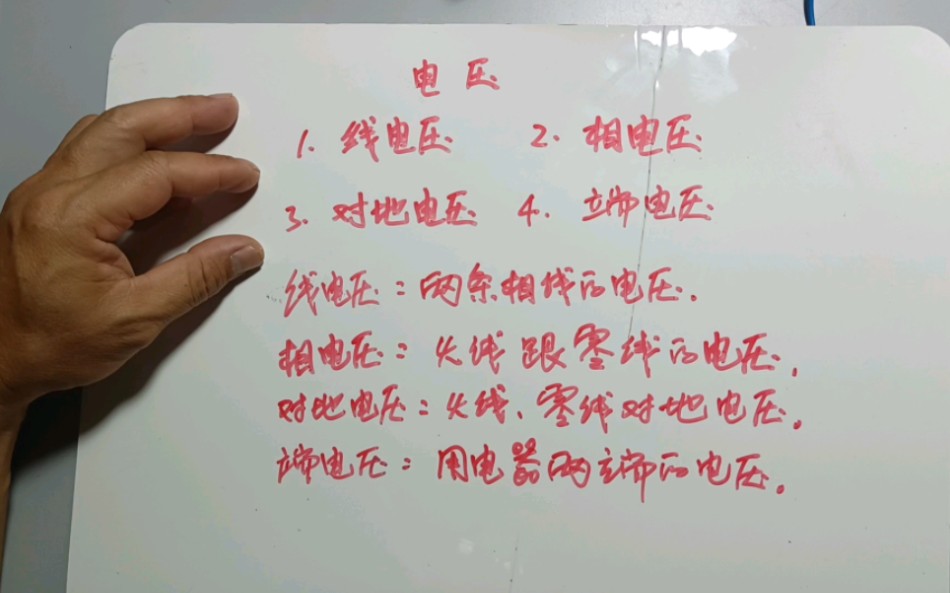 电压
1. 线电压 2. 相电压
3. 对地电压 4. 端电压
线电压：两条相线的电压.
相电压：火线跟零线的电压.
对地电压：火线、零线对地电压.
端电压：用电器两端的电压.